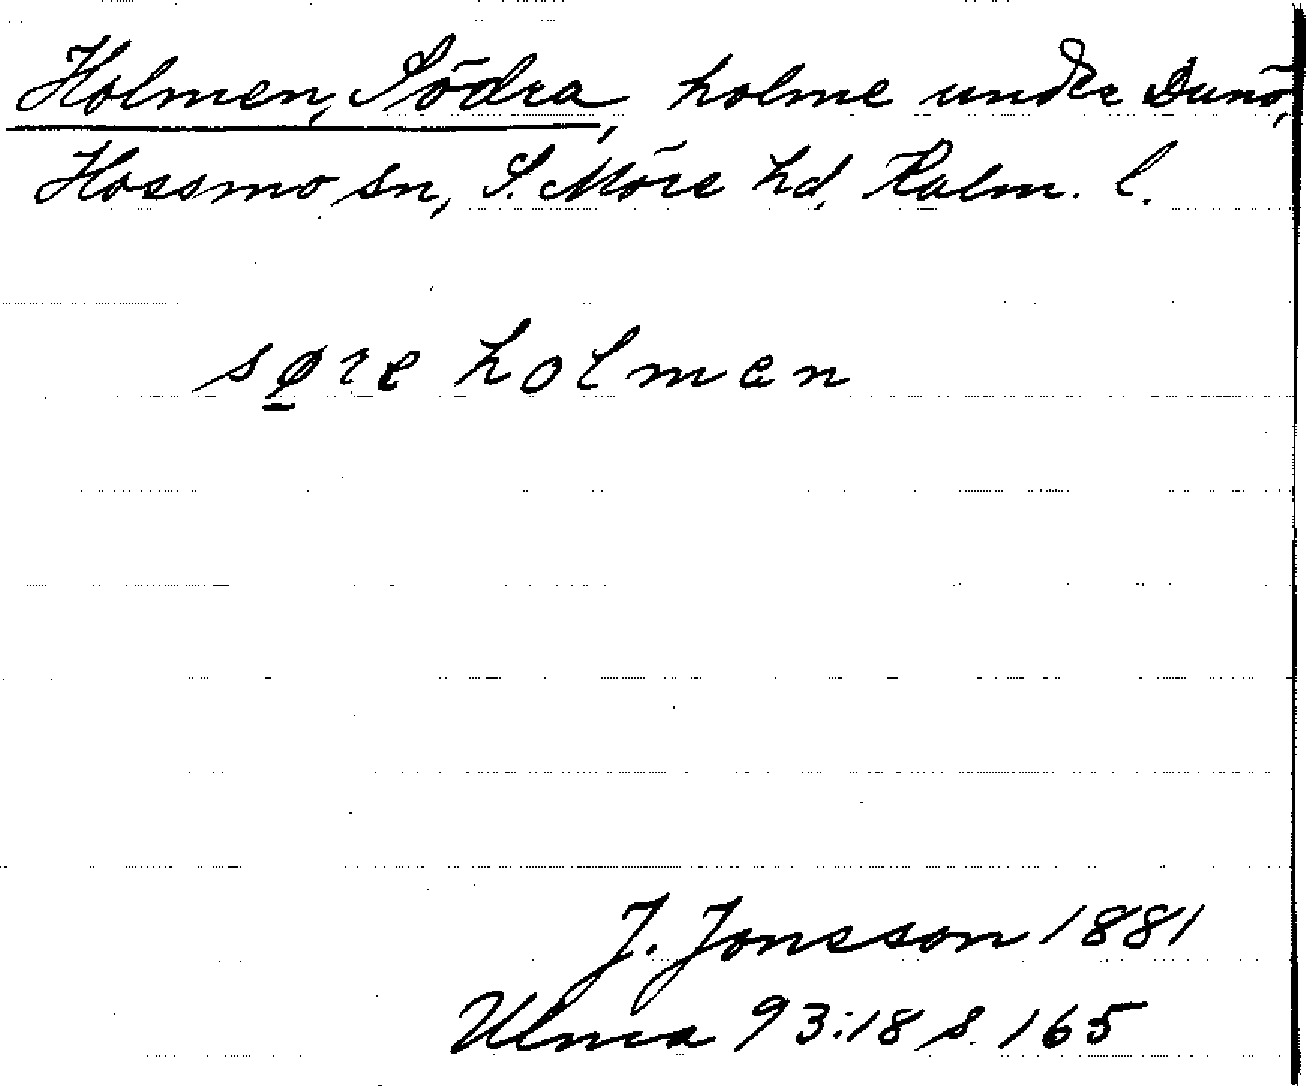 Holmen, Södra, holme under Dunö,
Hossmo sn, S. Möre hd, Kalm. l.
sø̱re holmen
J. Jonsson 1881
Ulma 93:18 s. 165